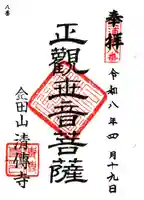 八番
奉拝
令和八年四月十九日
正觀世音菩薩
念田山 清傳寺